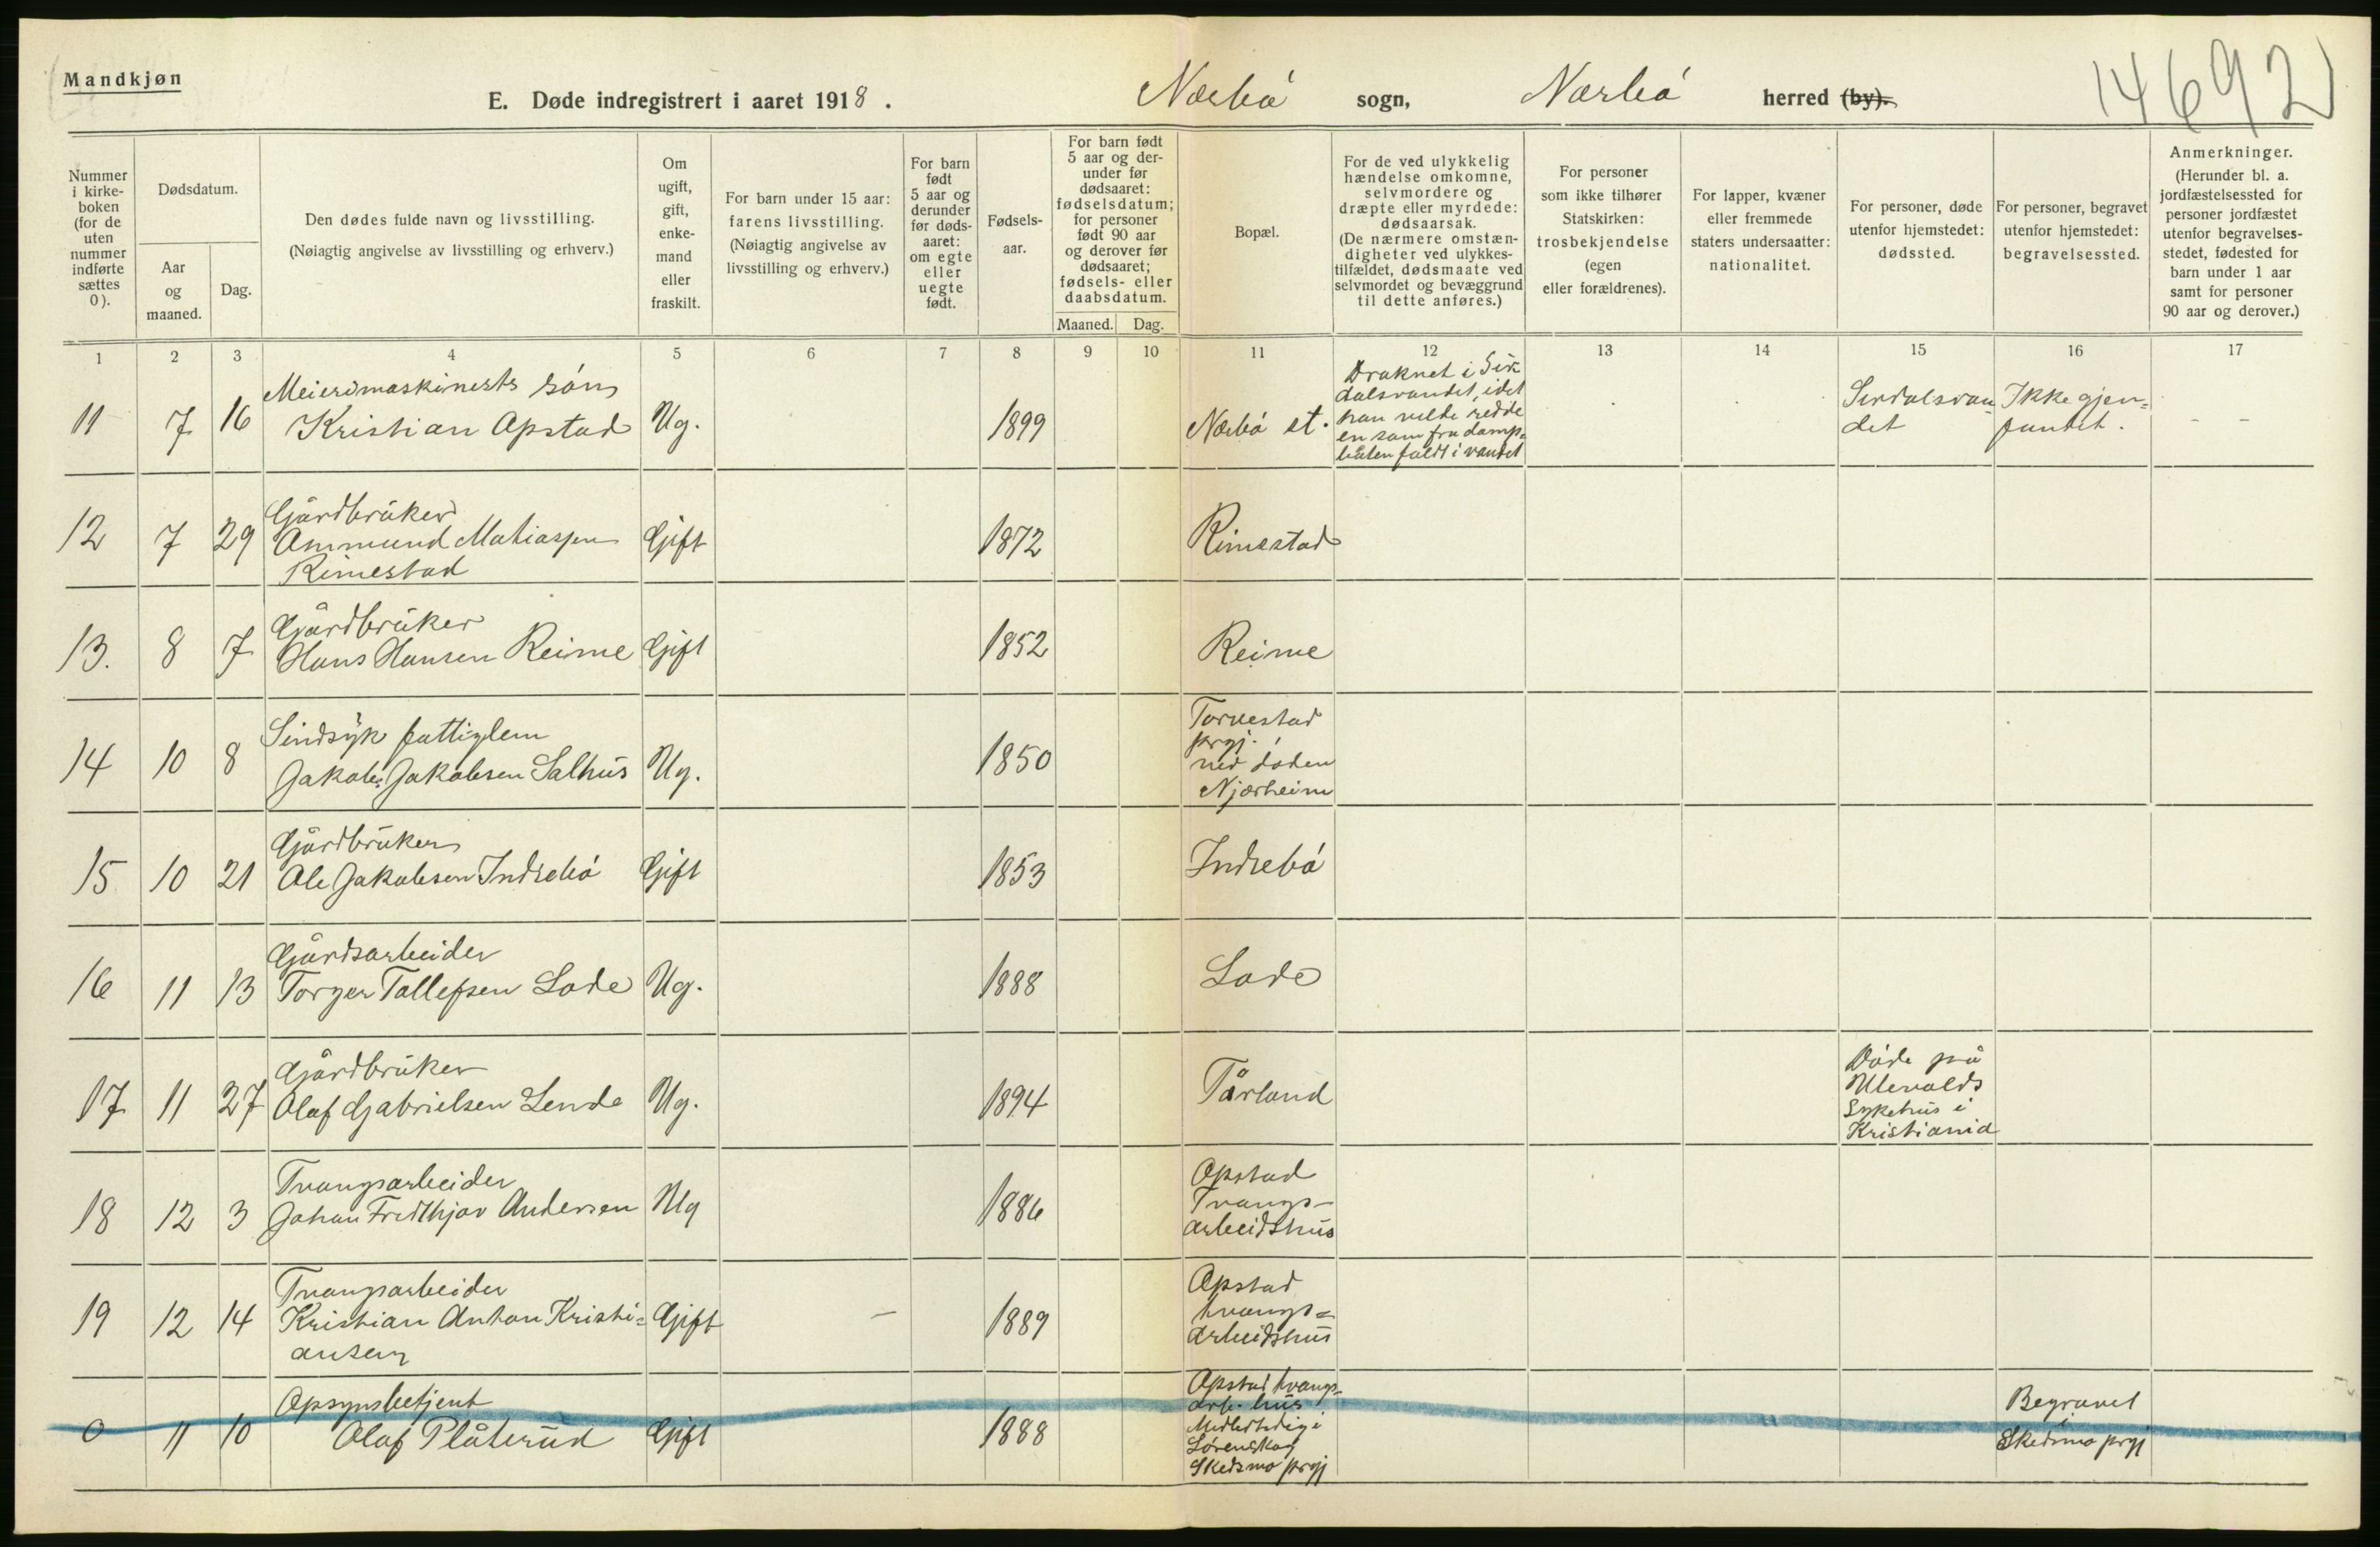 Mandkjøn
E. Døde indregistrert i aaret 1918.
Nærbø sogn, Nærbø herred (by).
14692
Nummer i kirkeboken (for de uten nummer indførte sættes 0).
Dødsdatum.
Aar og maaned.
Dag.
Den dødes fulde navn og livsstilling.
(Nøiagtig angivelse av livsstilling og erhverv.)
Om ugift, gift, enkemand eller fraskilt.
For barn under 15 aar: farens livsstilling. (Nøiagtig angivelse av livsstilling og erhverv.)
For barn født 5 aar og derunder før dødsaaret: om egte eller uegte født.
Fødselsaar.
For barn født 5 aar og derunder før dødsaaret: fødselsdatum; for personer født 90 aar og derover før dødsaaret; fødsels- eller daabsdatum.
Maaned. Dag.
Bopæl.
For de ved ulykkelig hændelse omkomne, selvmordere og dræpte eller myrdede: dødsaarsak. (De nærmere omstændigheter ved ulykkestilfældet, dødsmaate ved selvmordet og bevæggrund til dette anføres.)
For personer som ikke tilhører Statskirken: trosbekjendelse (egen eller forældrenes).
For lapper, kvæner eller fremmede staters undersaatter: nationalitet.
For personer, døde utenfor hjemstedet: dødssted.
For personer, begravet utenfor hjemstedet: begravelsessted.
Anmerkninger. (Herunder bl. a. jordfæstelsessted for personer jordfæstet utenfor begravelsesstedet, fødested for barn under 1 aar samt for personer 90 aar og derover.)
1 2 3 4 5 6 7 8 9 10 11 12 13 14 15 16 17
Meierimaskinests søn
11 7 16 Kristian Apstad Ug. 1899 Nærbø st.
Druknet i Sirdalsvandet, idet
han vilde redde
en som fra dampbåten faldt i vandet
Sirdalsvandet
Ikke gjenfundet. - -
Gårdbruker
12 7 29 Ammund Mathiassen Gift 1872 Rimestad
Rimestad
Gårdbruker
13. 8 7 Hans Hansen Reime Gift 1852 Reime
Sindsyk fattiglem
14 10 8 Jakob Jakobsen Salhus Ug. 1850
Torvestad
prgj.
ved døden
Njærheim
Gårdbruker
15 10 21 Ole Jakobsen Indrebø Gift 1853 Indrebø
Gårdsarbeider
16 11 13 Torger Tollefsen Lode Ug. 1888 Lode
Gårdbruker
17 11 27 Olaf Gabrielsen Lende Ug. 1894 Tårland
Døde på
Ulevolds
Sykehus i
Kristiania
Tvangsarbeider
18 12 3 Johan Fridthjov Andersen Ug 1886
Opstad
Tvangs-
arbeidshus
Tvangsarbeider
19 12 14 Kristian Anton Kristi= Gift - 1889
ansen
Opstad
tvangs=
arbeidshus
Opsynsbetjent
0 11 10 Olaf Plåterud Gift 1888
Opstad tvangs-
arb. hus
Midlertidig i
Lørenskog
Skedsmo prgj
Begravet
i
Skedsmo prgj